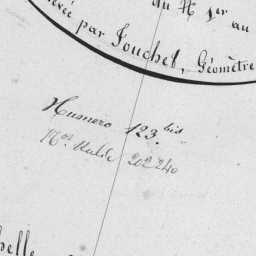 du N 1er au
levée par Fouchet, Géomètre
Numero 123.bis
Nos 202 240
belle